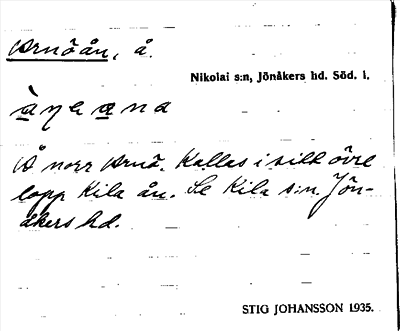 Arnöån, å.
Nikolai s:n, Jönåkers hd. Söd. l.
Å norr Arnö. Kallas i sitt övre
lopp Kila ån. Se Kila s:n, Jön-
åkers hd.
STIG JOHANSSON 1935.